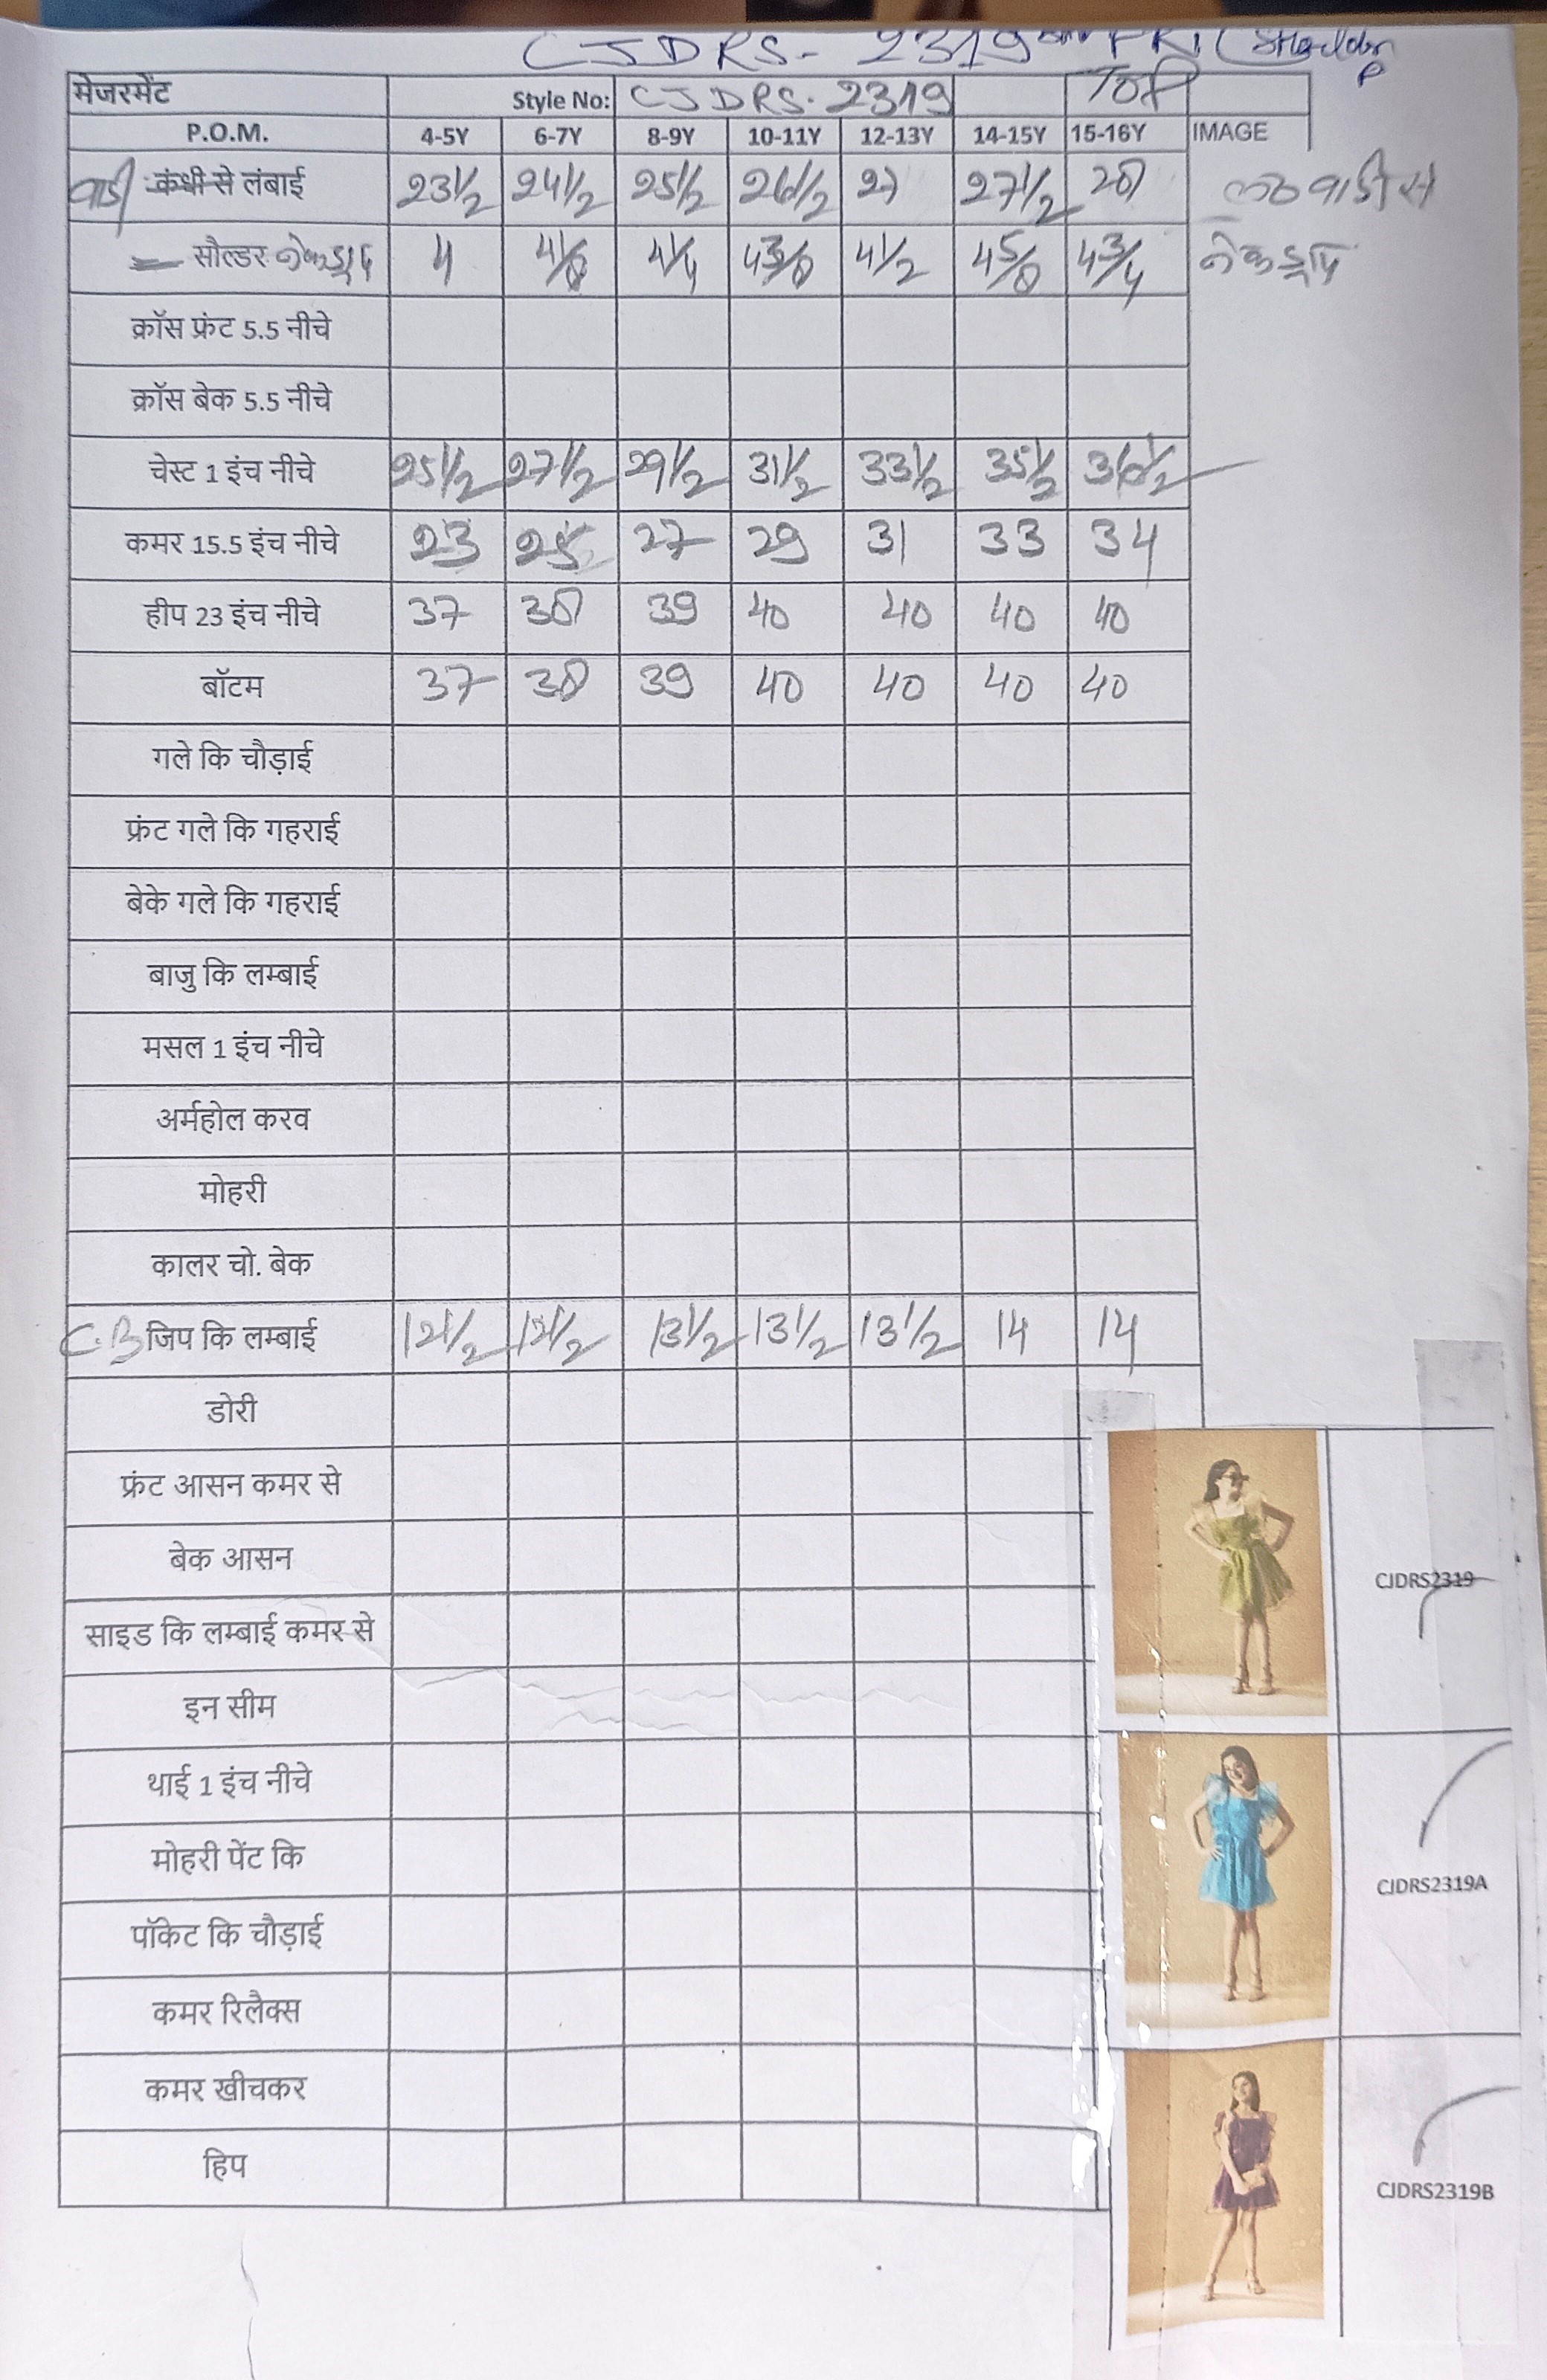 CJDRS- 2319
मेजरमेंट Style No: CJDRS-2319 TOP
P.O.M. 4-5Y 6-7Y 8-9Y 10-11Y 12-13Y 14-15Y 15-16Y IMAGE
बाडी कंधी से लंबाई 23 1/2 24 1/2 25 1/2 26 1/2 27 27 1/2 28
सौल्डर नेकड्राप 4 4 1/8 4 1/4 4 3/8 4 1/2 4 5/8 4 3/4 नेकड्राप
क्रॉस फ्रंट 5.5 नीचे
क्रॉस बेक 5.5 नीचे
चेस्ट 1 इंच नीचे 25 1/2 27 1/2 29 1/2 31 1/2 33 1/2 35 1/2 36 1/2
कमर 15.5 इंच नीचे 23 25 27 29 31 33 34
हीप 23 इंच नीचे 37 38 39 40 40 40 40
बॉटम 37 38 39 40 40 40 40
गले कि चौड़ाई
फ्रंट गले कि गहराई
बेके गले कि गहराई
बाजु कि लम्बाई
मसल 1 इंच नीचे
अर्महोल करव
मोहरी
कालर चो. बेक
C.B जिप कि लम्बाई 12 1/2 12 1/2 13 1/2 13 1/2 13 1/2 14 14
डोरी
फ्रंट आसन कमर से
बेक आसन
CJDRS2319
साइड कि लम्बाई कमर से
इन सीम
थाई 1 इंच नीचे
मोहरी पेंट कि
CJDRS2319A
पॉकेट कि चौड़ाई
कमर रिलैक्स
कमर खीचकर
हिप
CJDRS2319B